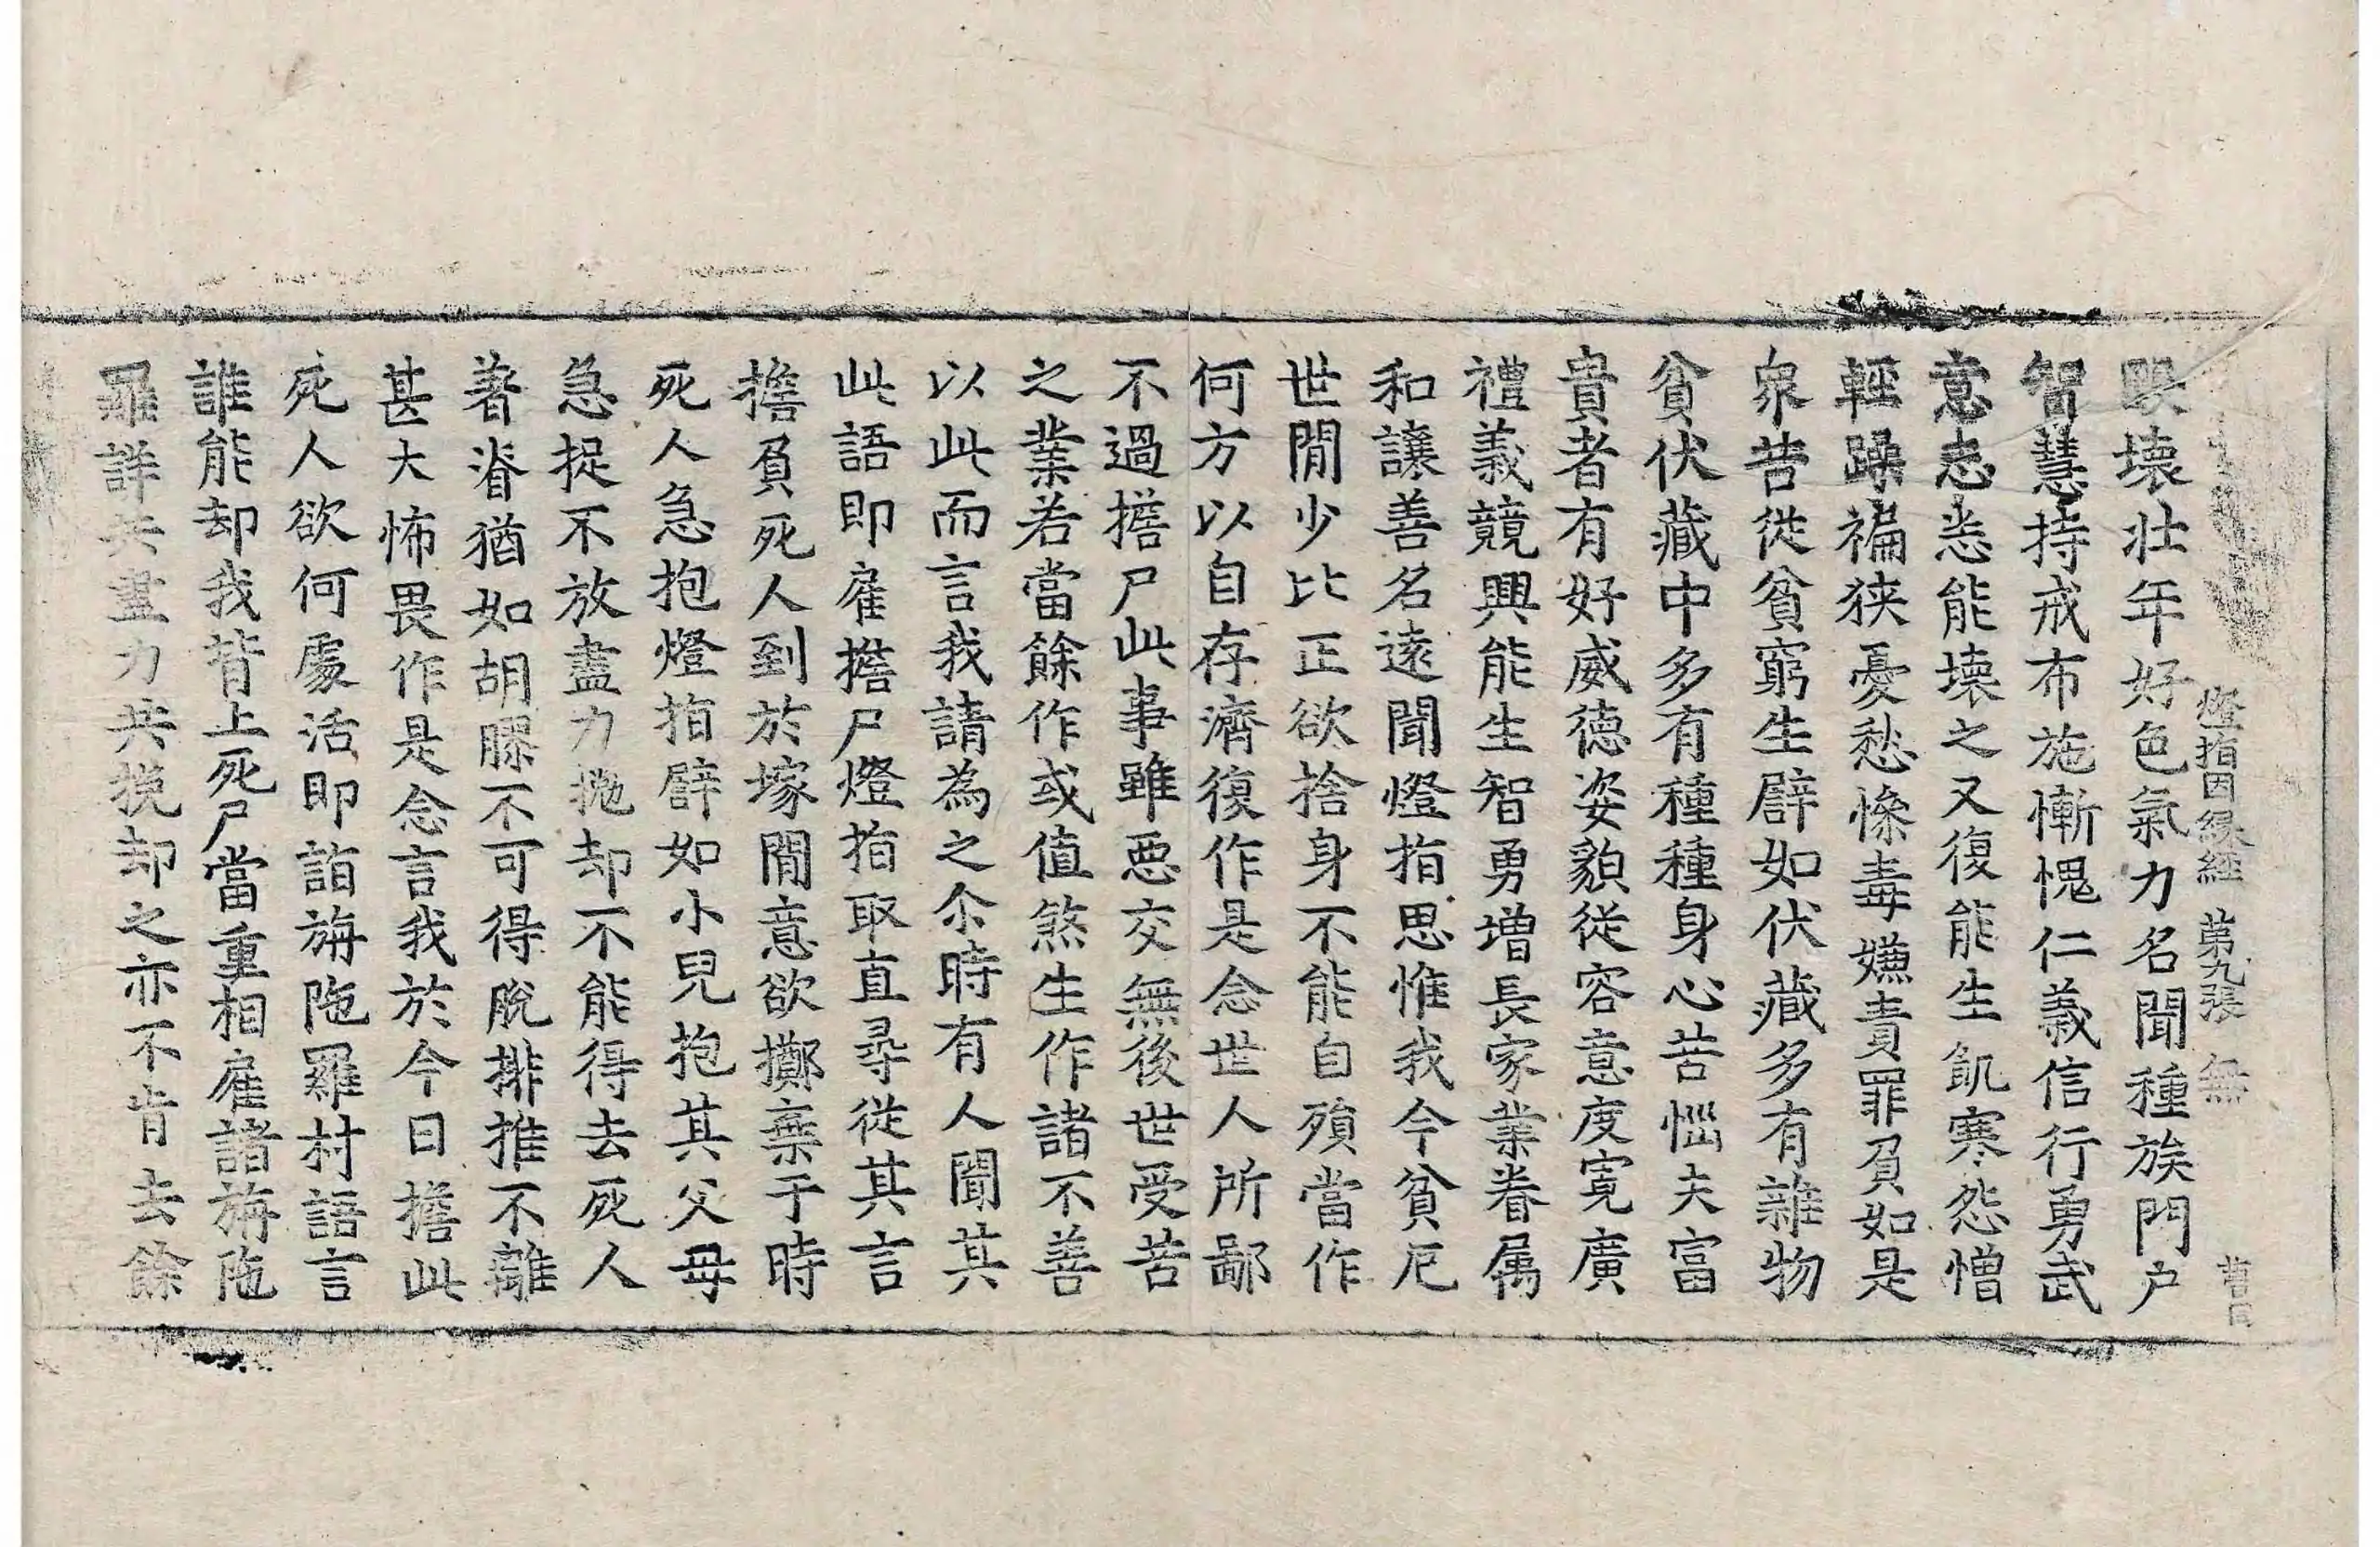 燈指因縁經 第九張 無
壞壯年好色氣力名聞種族門户
智慧持戒布施慚愧仁義信行勇武
意志悉能壞之又復能生飢寒怨憎
輕躁褊狹憂愁慘毒嫌責罪負如是
衆苦從貧窮生譬如伏藏多有雜物
貧伏藏中多有種種身心苦惱夫富
貴者有好威德姿貌從容意度寬廣
禮義競興能生智勇增長家業眷属
和讓善名遠聞燈指思惟我今貧厄
世閒少比正欲捨身不能自殞當作
何方以自存濟復作是念世人所鄙
不過擔尸此事雖惡交無後世受苦
之業若當餘作或值煞生作諸不善
以此而言我請為之尒時有人聞其
此語即雇擔尸燈指取直尋從其言
擔負死人到於塚閒意欲擲棄于時
死人急抱燈指譬如小兒抱其父母
急捉不放盡力抛却不能得去死人
著脊猶如胡膠不可得脫排推不離
甚大怖畏作是念言我於今日擔此
死人欲何處活即詣旃陁羅村語言
誰能却我背上死尸當重相雇諸旃陁
羅詳共盡力共挽却之亦不肯去餘